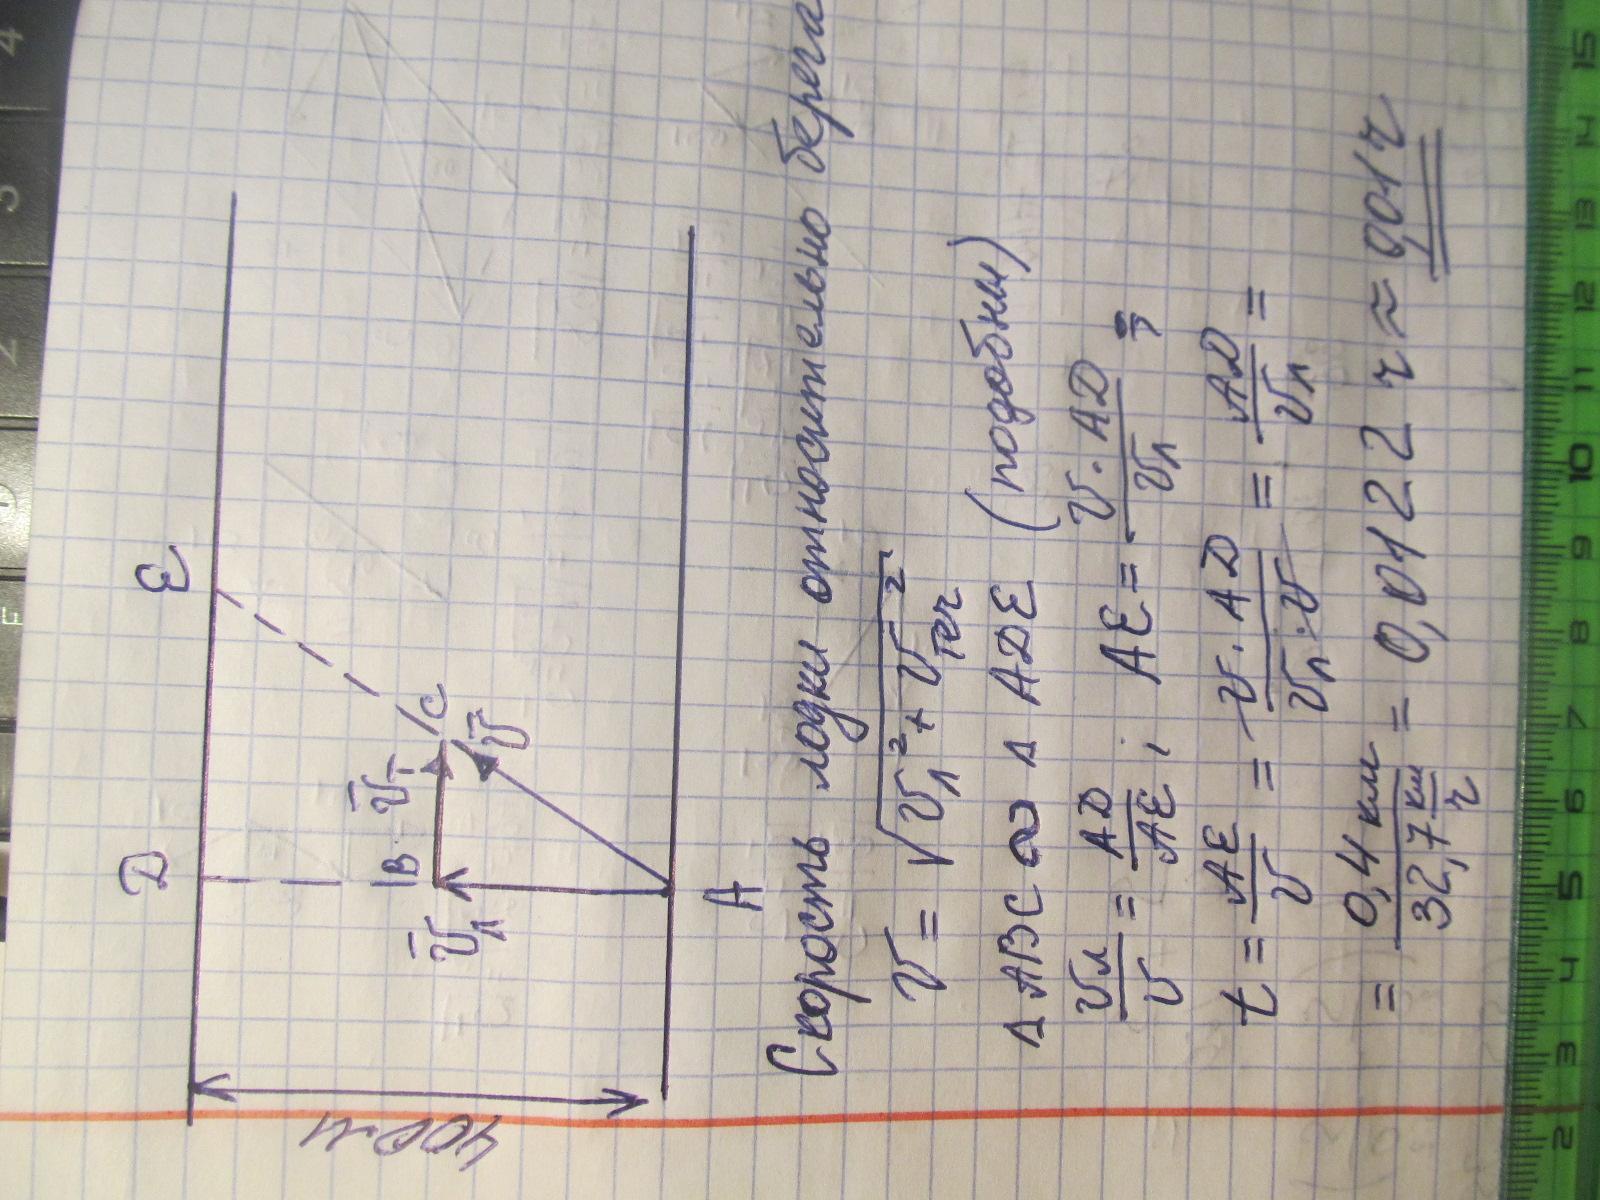 D E
B v̄т C
v̄л v̄
A
400 м
Скорость лодки относительно берега
v = √(vл² + vтеч²)
Δ ABC ∞ Δ ADE (подобны)
vл/v = AD/AE ; AE = v · AD/vл ;
t = AE/v = v · AD/vл · v = AD/vл =
= 0,4 км/32,7 км/ч = 0,0122 ч ≈ 0,01 ч
2 3 4 5 6 7 8 9 10 11 12 13 14 15